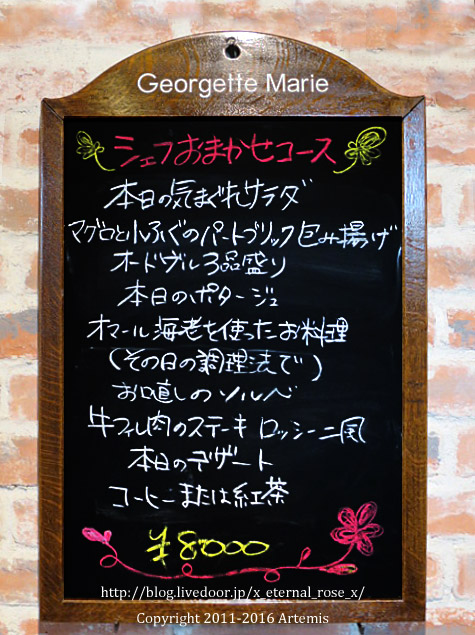 Georgette Marie
シェフおまかせコース
本日の気まぐれサラダ
マグロと小ふぐのパートブリック包み揚げ
オードヴル3品盛り
本日のポタージュ
オマール海老を使ったお料理
(その日の調理法で)
お口直しのソルベ
牛フィレ肉のステーキ ロッシーニ風
本日のデザート
コーヒーまたは紅茶
¥8000
http://blog.livedoor.jp/x_eternal_rose_x/
Copyright 2011-2016 Artemis